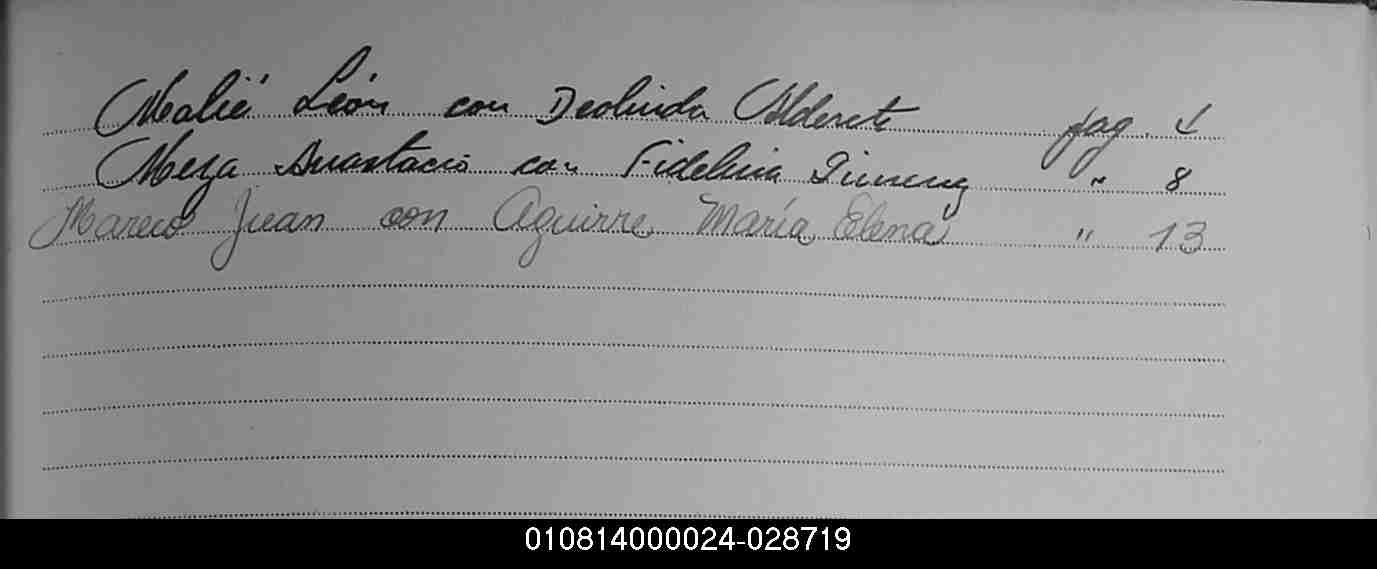 León con Deolinda Alderete pag.
Meza Anastacio con Fidelina Gimenez " 8
Mareco Juan con Aguirre María Elena " 13
010814000024-028719